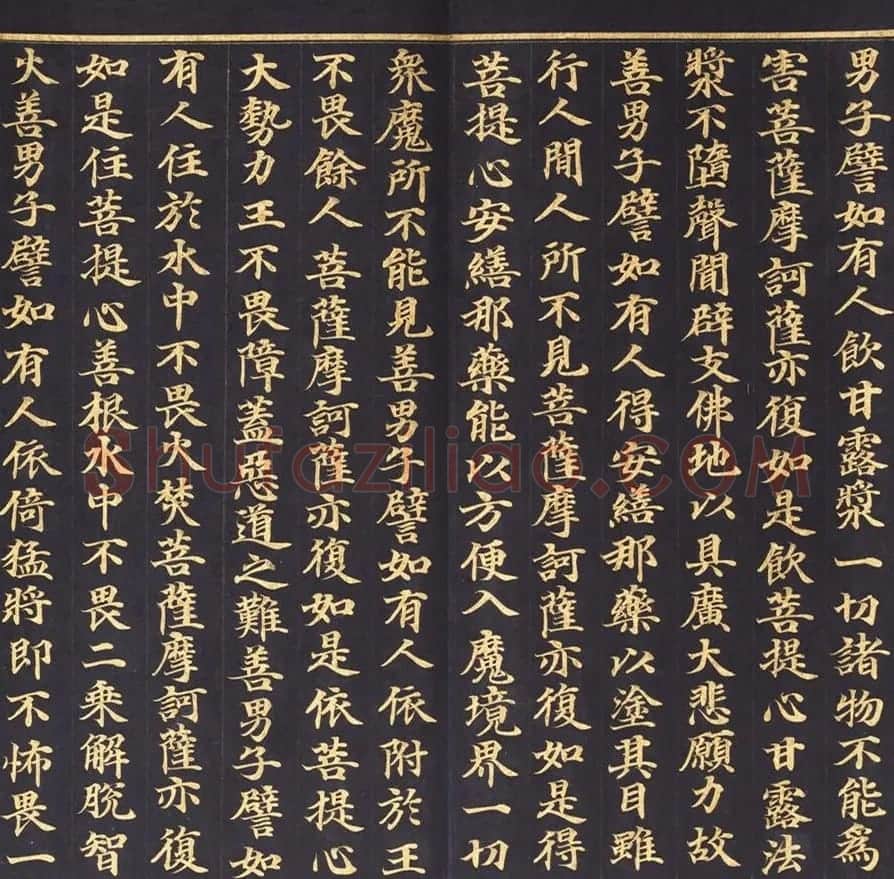 男子譬如有人飲甘露漿一切諸物不能爲
害菩薩摩訶薩亦復如是飲菩提心甘露法
漿不墮聲聞辟支佛地以具廣大悲願力故
善男子譬如有人得安繕那藥以塗其目雖
行人間人所不見菩薩摩訶薩亦復如是得
菩提心安繕那藥能以方便入魔境界一切
衆魔所不能見善男子譬如有人依附於王
不畏餘人菩薩摩訶薩亦復如是依菩提心
大勢力王不畏障蓋惡道之難善男子譬如
有人住於水中不畏火焚菩薩摩訶薩亦復
如是住菩提心善根水中不畏二乘解脫智
火善男子譬如有人依倚猛將即不怖畏一
Shufaziliao.COM